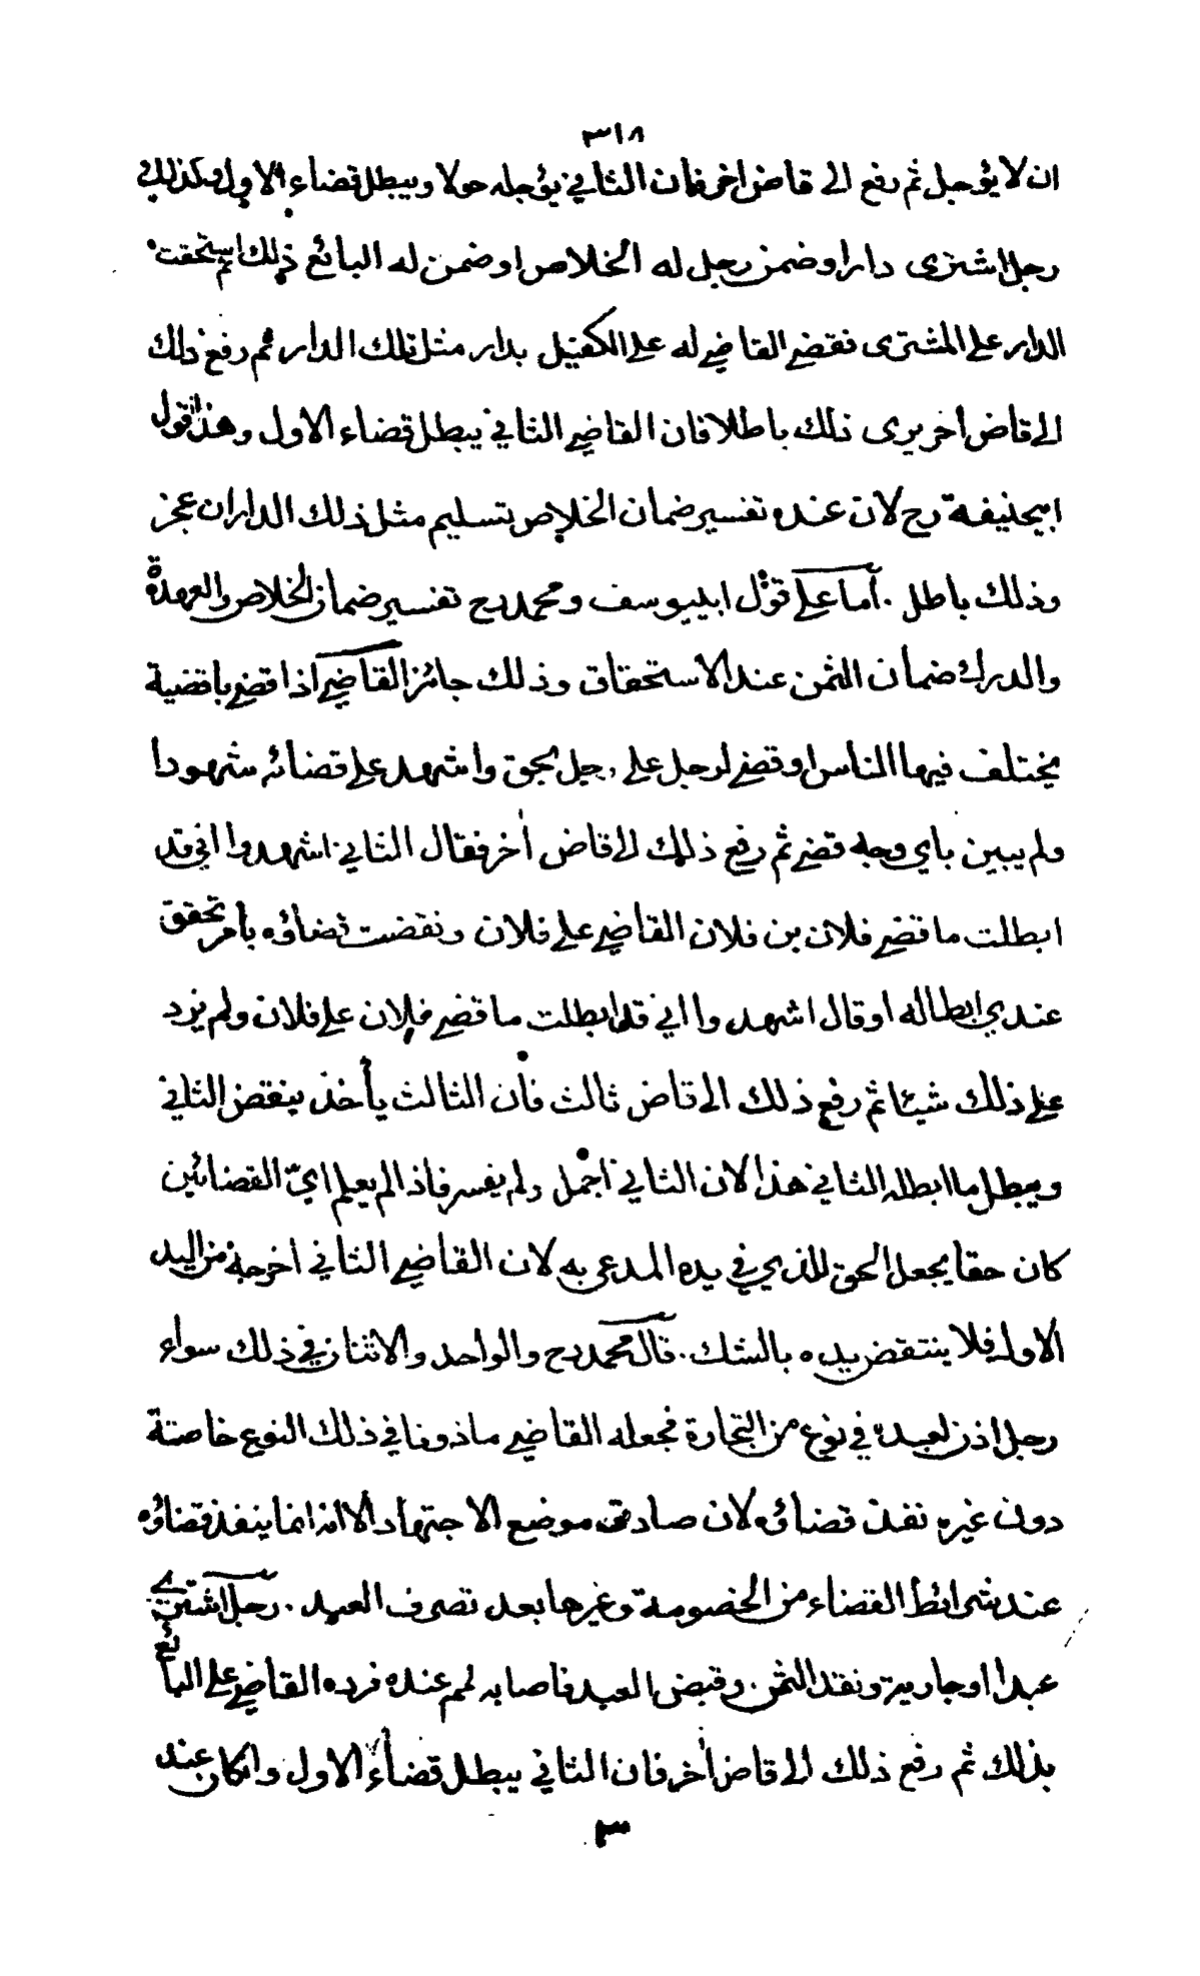 ٣١٨
ان لا يؤجل ثم رفع الى قاض اخر فان الثاني يؤجله حولا ويبطل قضاء الاول وكذلك
رجل اشترى دارا وضمن رجل له الخلاص او ضمن له البائع ذلك ثم استحقت
الدار على المشترى فقضى القاضي له على الكفيل بدار مثل تلك الدار ثم رفع ذلك
الى قاض اخر يرى ذلك باطلا فان القاضي الثاني يبطل قضاء الاول وهذا قول
ابيحنيفة رح لان عنده تفسير ضمان الخلاص تسليم مثل ذلك الدار ان عجز
وذلك باطل . أما على قول ابييوسف ومحمد رح تفسير ضمان الخلاص والعهدة
والدرك ضمان الثمن عند الاستحقاق وذلك جائز القاضي اذا قضى باقضية
يختلف فيها الناس او قضى لرجل على رجل بحق واشهد على قضائه شهودا
ولم يبين باي وجه قضى ثم رفع ذلك الى قاض أخر فقال الثاني اشهدوا اني قد
ابطلت ما قضى فلان بن فلان القاضي على فلان ونقضت قضاؤه بامر تحقق
عندي ابطاله او قال اشهدوا اني قد ابطلت ما قضى فلان على فلان ولم يزد
على ذلك شيئا ثم رفع ذلك الى قاض ثالث فان الثالث يأخذ بنقض الثاني
ويبطل ما ابطله الثاني هذا لان الثاني اجمل ولم يفسر فاذا لم يعلم ايّ القضائين
كان حقا يجعل الحق للذي في يده المدعى به لان القاضي الثاني اخرجه من اليد
الاولى فلا ينتقض يده بالشك . قال محمد رح والواحد والاثنان في ذلك سواء
رجل اذن لعبده في نوع من التجارة فجعله القاضي ماذونا في ذلك النوع خاصة
دون غيره نفذ قضائه لان صادق موضع الاجتهاد الا انه انما ينفذ قضاؤه
عند شرائط القضاء من الخصومة وغيرها بعد تصرف العبد . رجل اشترى
عبدا او جارية ونقد الثمن وقبض العبد فاصابه لمم عنده فرده القاضي على البائع
بذلك ثم رفع ذلك الى قاض أخر فان الثاني يبطل قضاء الاول وانكان عند
٣